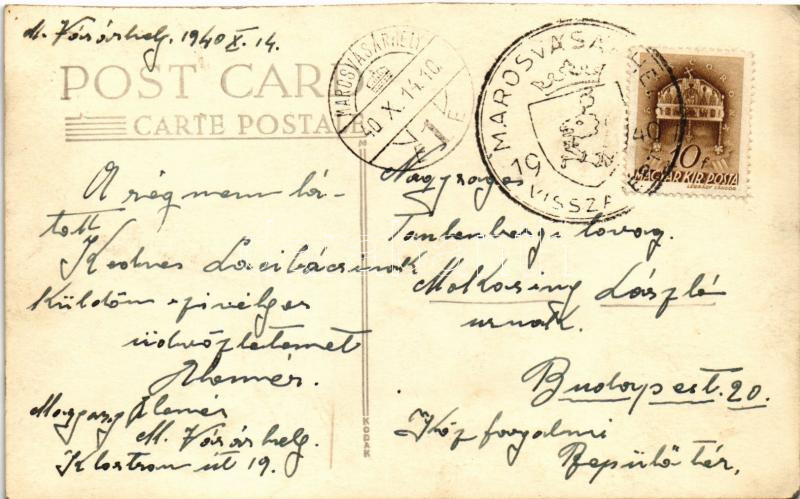 M. Vásárhely, 1940 X. 14.
POST CARD
CARTE POSTALE
MAROSVÁSÁRHELY
40 X. 14. 10
1 E
MAROSVÁSÁRHELY
19 40
VISSZATÉRT
10 f
MAGYAR KIR. POSTA
LÉGRÁDY SÁNDOR
A rég nem lá-
tott
Kedves Lacibácsinak
küldöm szivélyes
üdvözletemet
Elemér.
Elemér
M. Vásárhely.
út 19.
Nagyságos
lovag.
László
urnak.
Budapest. 20.
Közforgalmi
Repülőtér,
KODAK